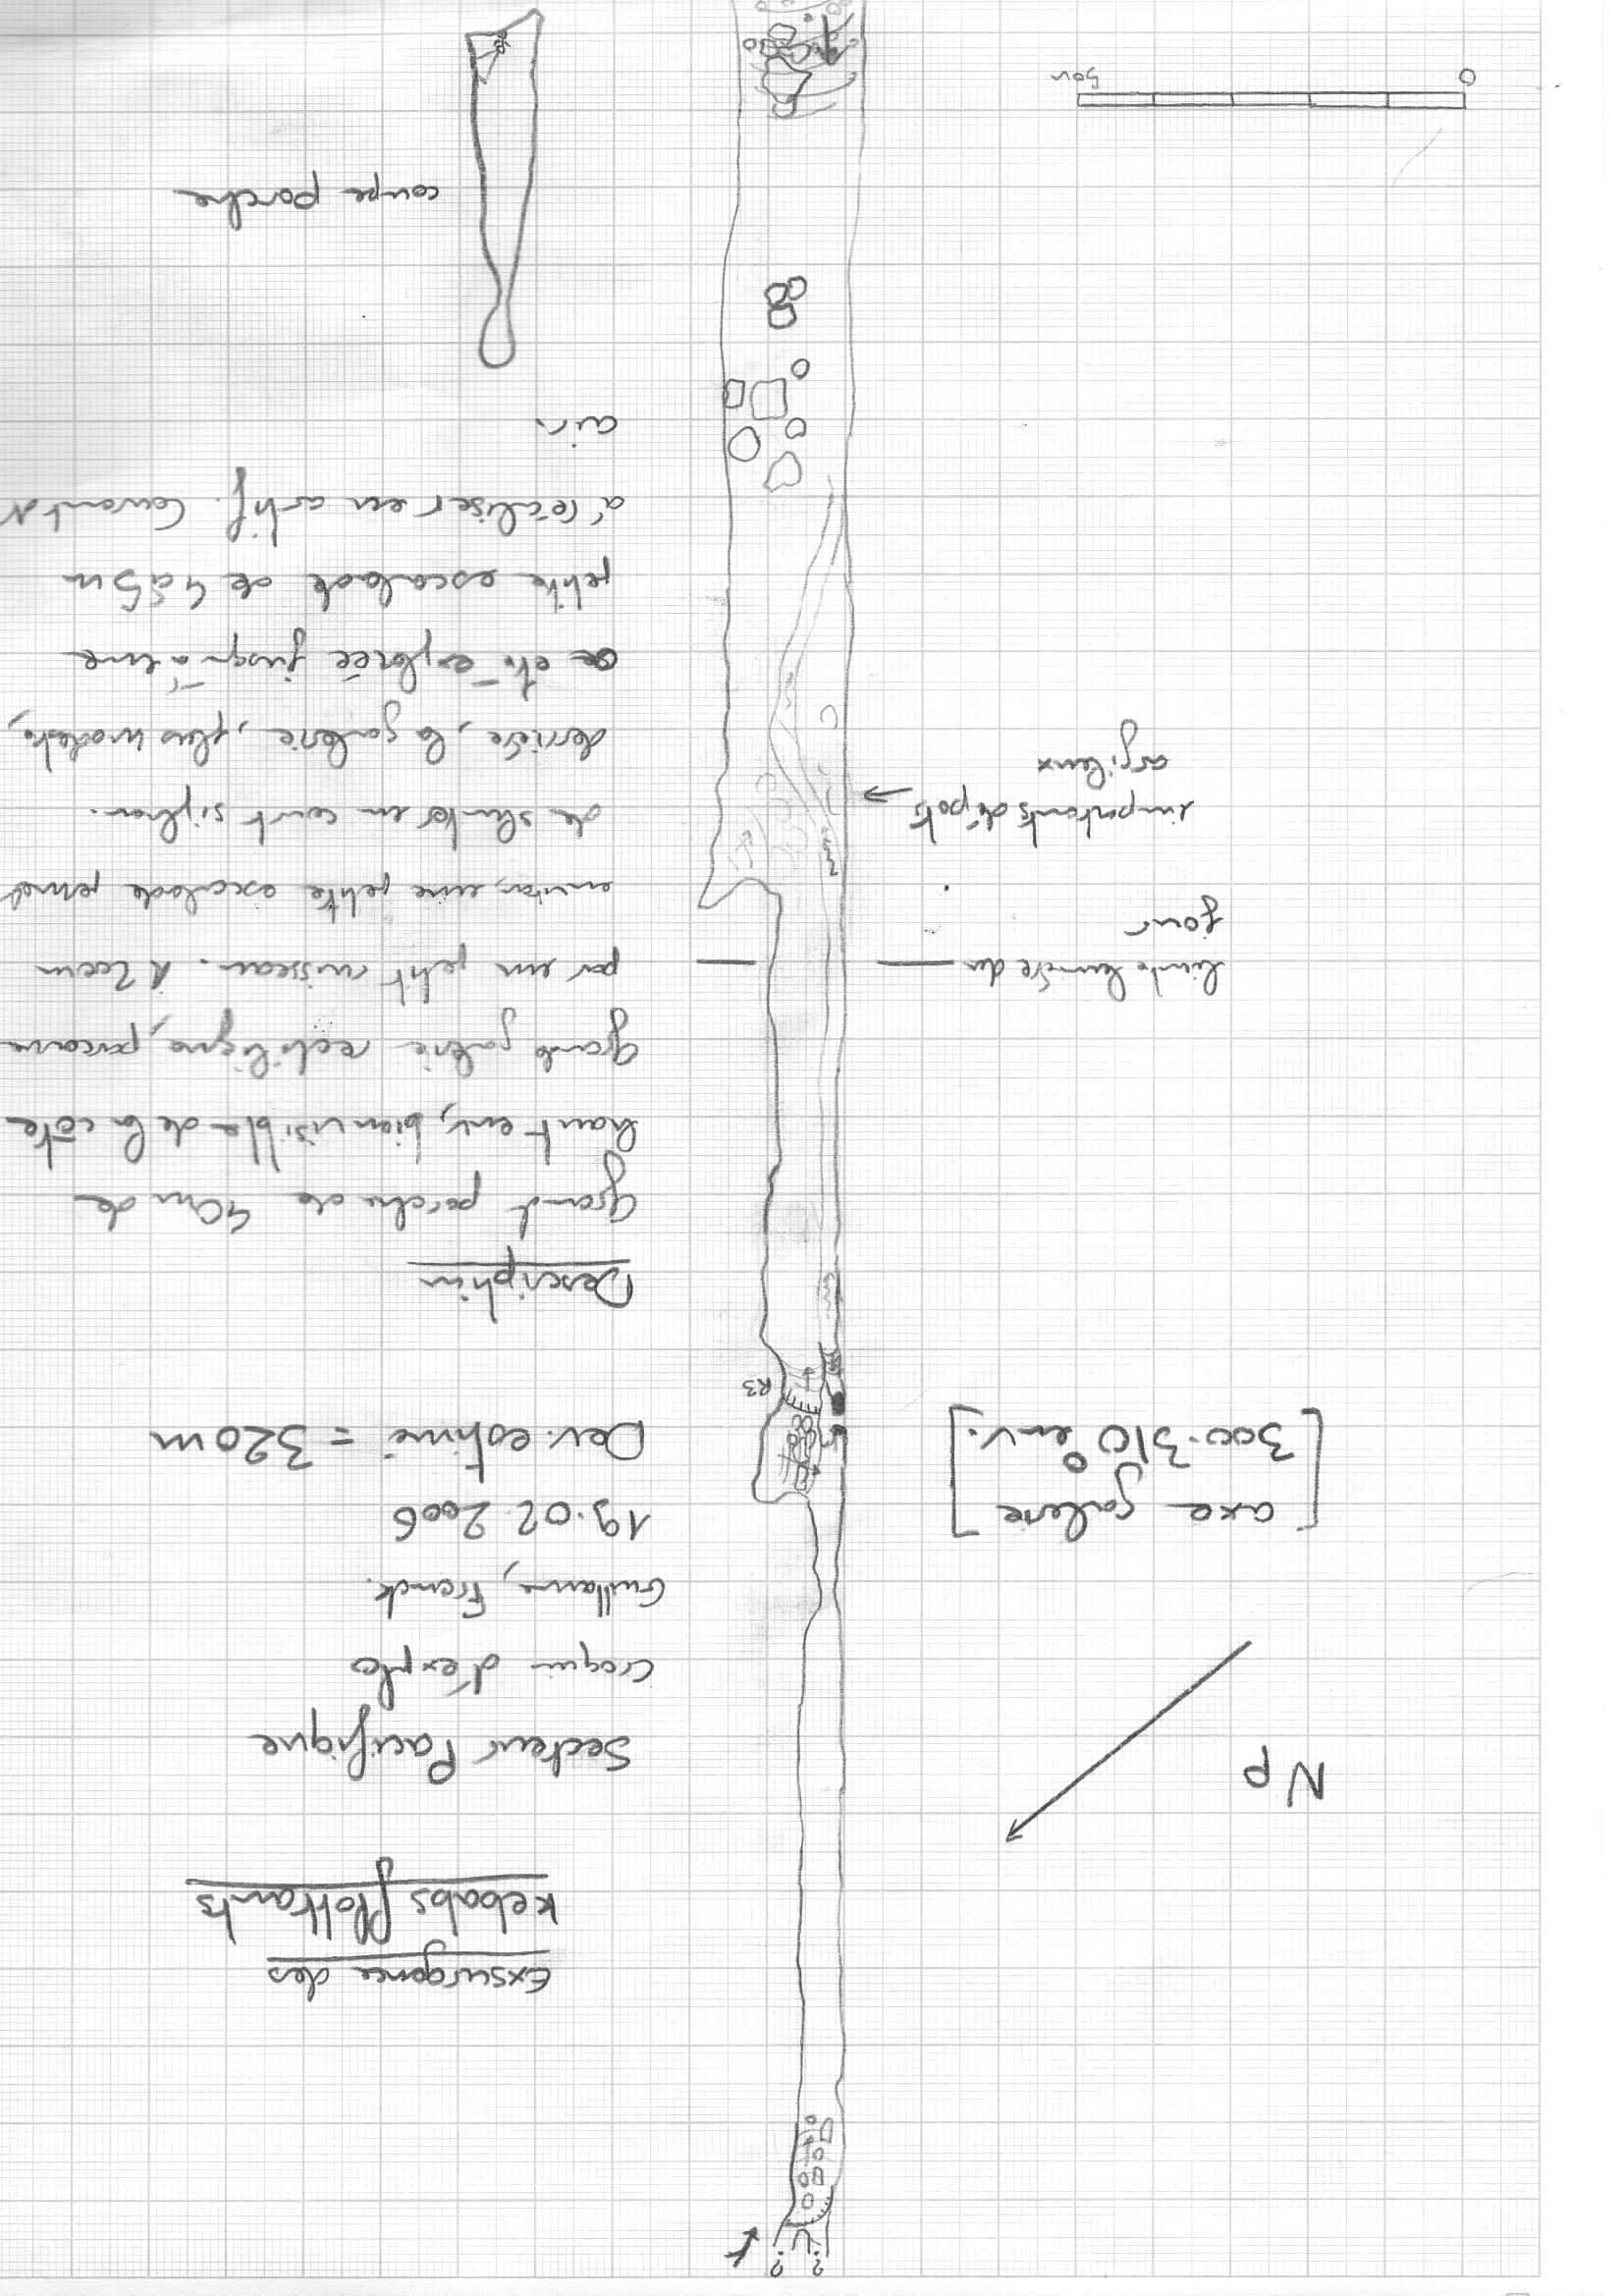 Exsurgence des
Kebabs flottants
Secteur Pacifique
Croquis d'explo
Guillaume, Franck.
19.02.2006
Dev. estimé = 320m
Description
Grand porche de 40m de
haut env, bien visible de la côte
Grande galerie rectiligne, parcourue
par un petit ruisseau. A 200m
environ, une petite escalade permet
de shunter un court siphon.
derrière, la galerie, plus modeste,
a été explorée jusqu'à une
petite escalade de 4 à 5m
à réaliser en artif. Courant d'
air.
coupe porche
Np
[axe galerie
300-310° env.]
R3
limite lumière du
jour
importants dépôts
argileux
0
50m
? ?